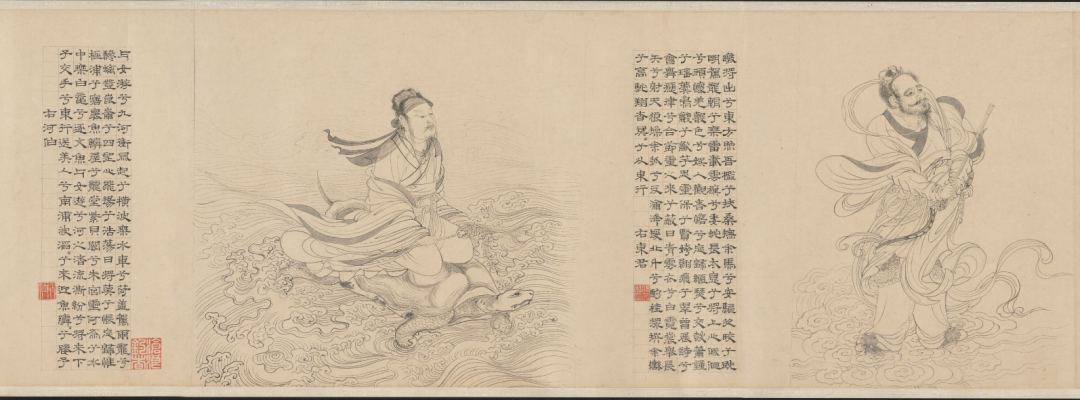 暾將出兮東方照吾檻兮扶桑撫余馬兮安驅夜皎兮既
明駕龍輈兮乘雷載雲旗兮委蛇長太息兮將上心低佪
兮顧懷羌聲色兮娛人觀者憺兮忘歸緪瑟兮交鼓簫鍾
兮瑤簴鳴篪兮吹竽思靈保兮賢姱翾飛兮翠曾展詩兮
會舞應律兮合節靈之來兮蔽日青雲衣兮白霓裳舉長
矢兮射天狼操余弧兮反淪降援北斗兮酌桂漿撰余轡
兮高馳翔杳冥冥兮以東行
右東君
与女遊兮九河衝風起兮橫波乘水車兮荷蓋駕兩龍兮
驂螭登崑崙兮四望心飛揚兮浩蕩日將暮兮悵忘歸惟
極浦兮寤懷魚鱗屋兮龍堂紫貝闕兮朱宮靈何為兮水
中乘白黿兮逐文魚与女遊兮河之渚流澌紛兮將來下
子交手兮東行送美人兮南浦波滔滔兮來迎魚鱗兮媵予
右河伯